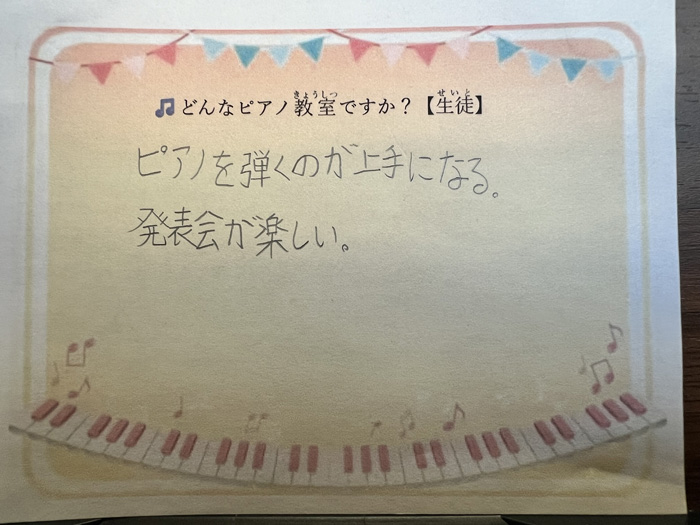 どんなピアノ教室ですか？【生徒】
ピアノを弾くのが上手になる。
発表会が楽しい。